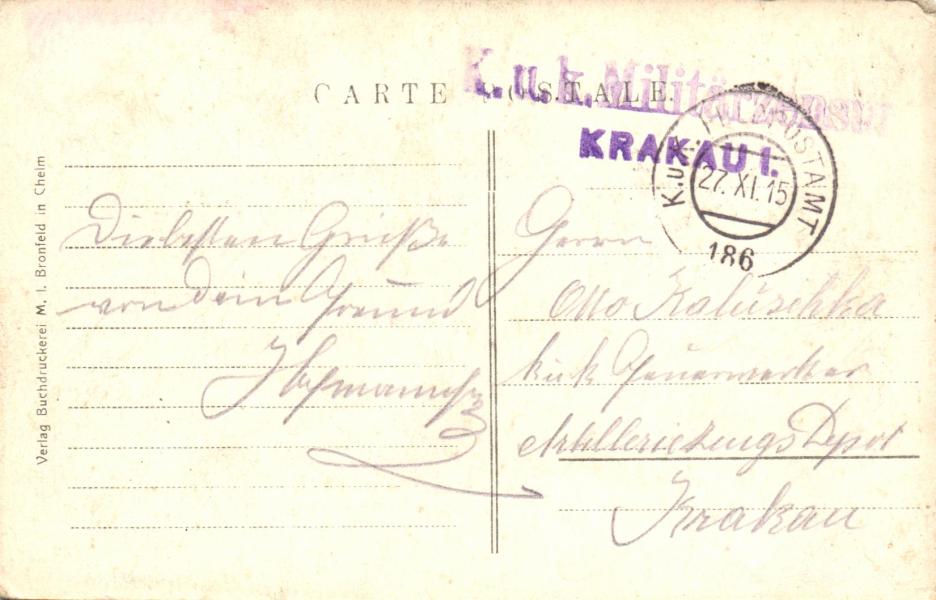 CARTE POSTALE.
K.u.k. Militärzensur
KRAKAU I.
K.u.K. POSTAMT
27. XI. 15
186
Verlag Buchdruckerei M. I. Bronfeld in Chelm
Die besten Grüße
von dein Freund
Herrn
Otto Kaluschka
kuk Feuerwerker
Artilleriezeugs Depot
Krakau